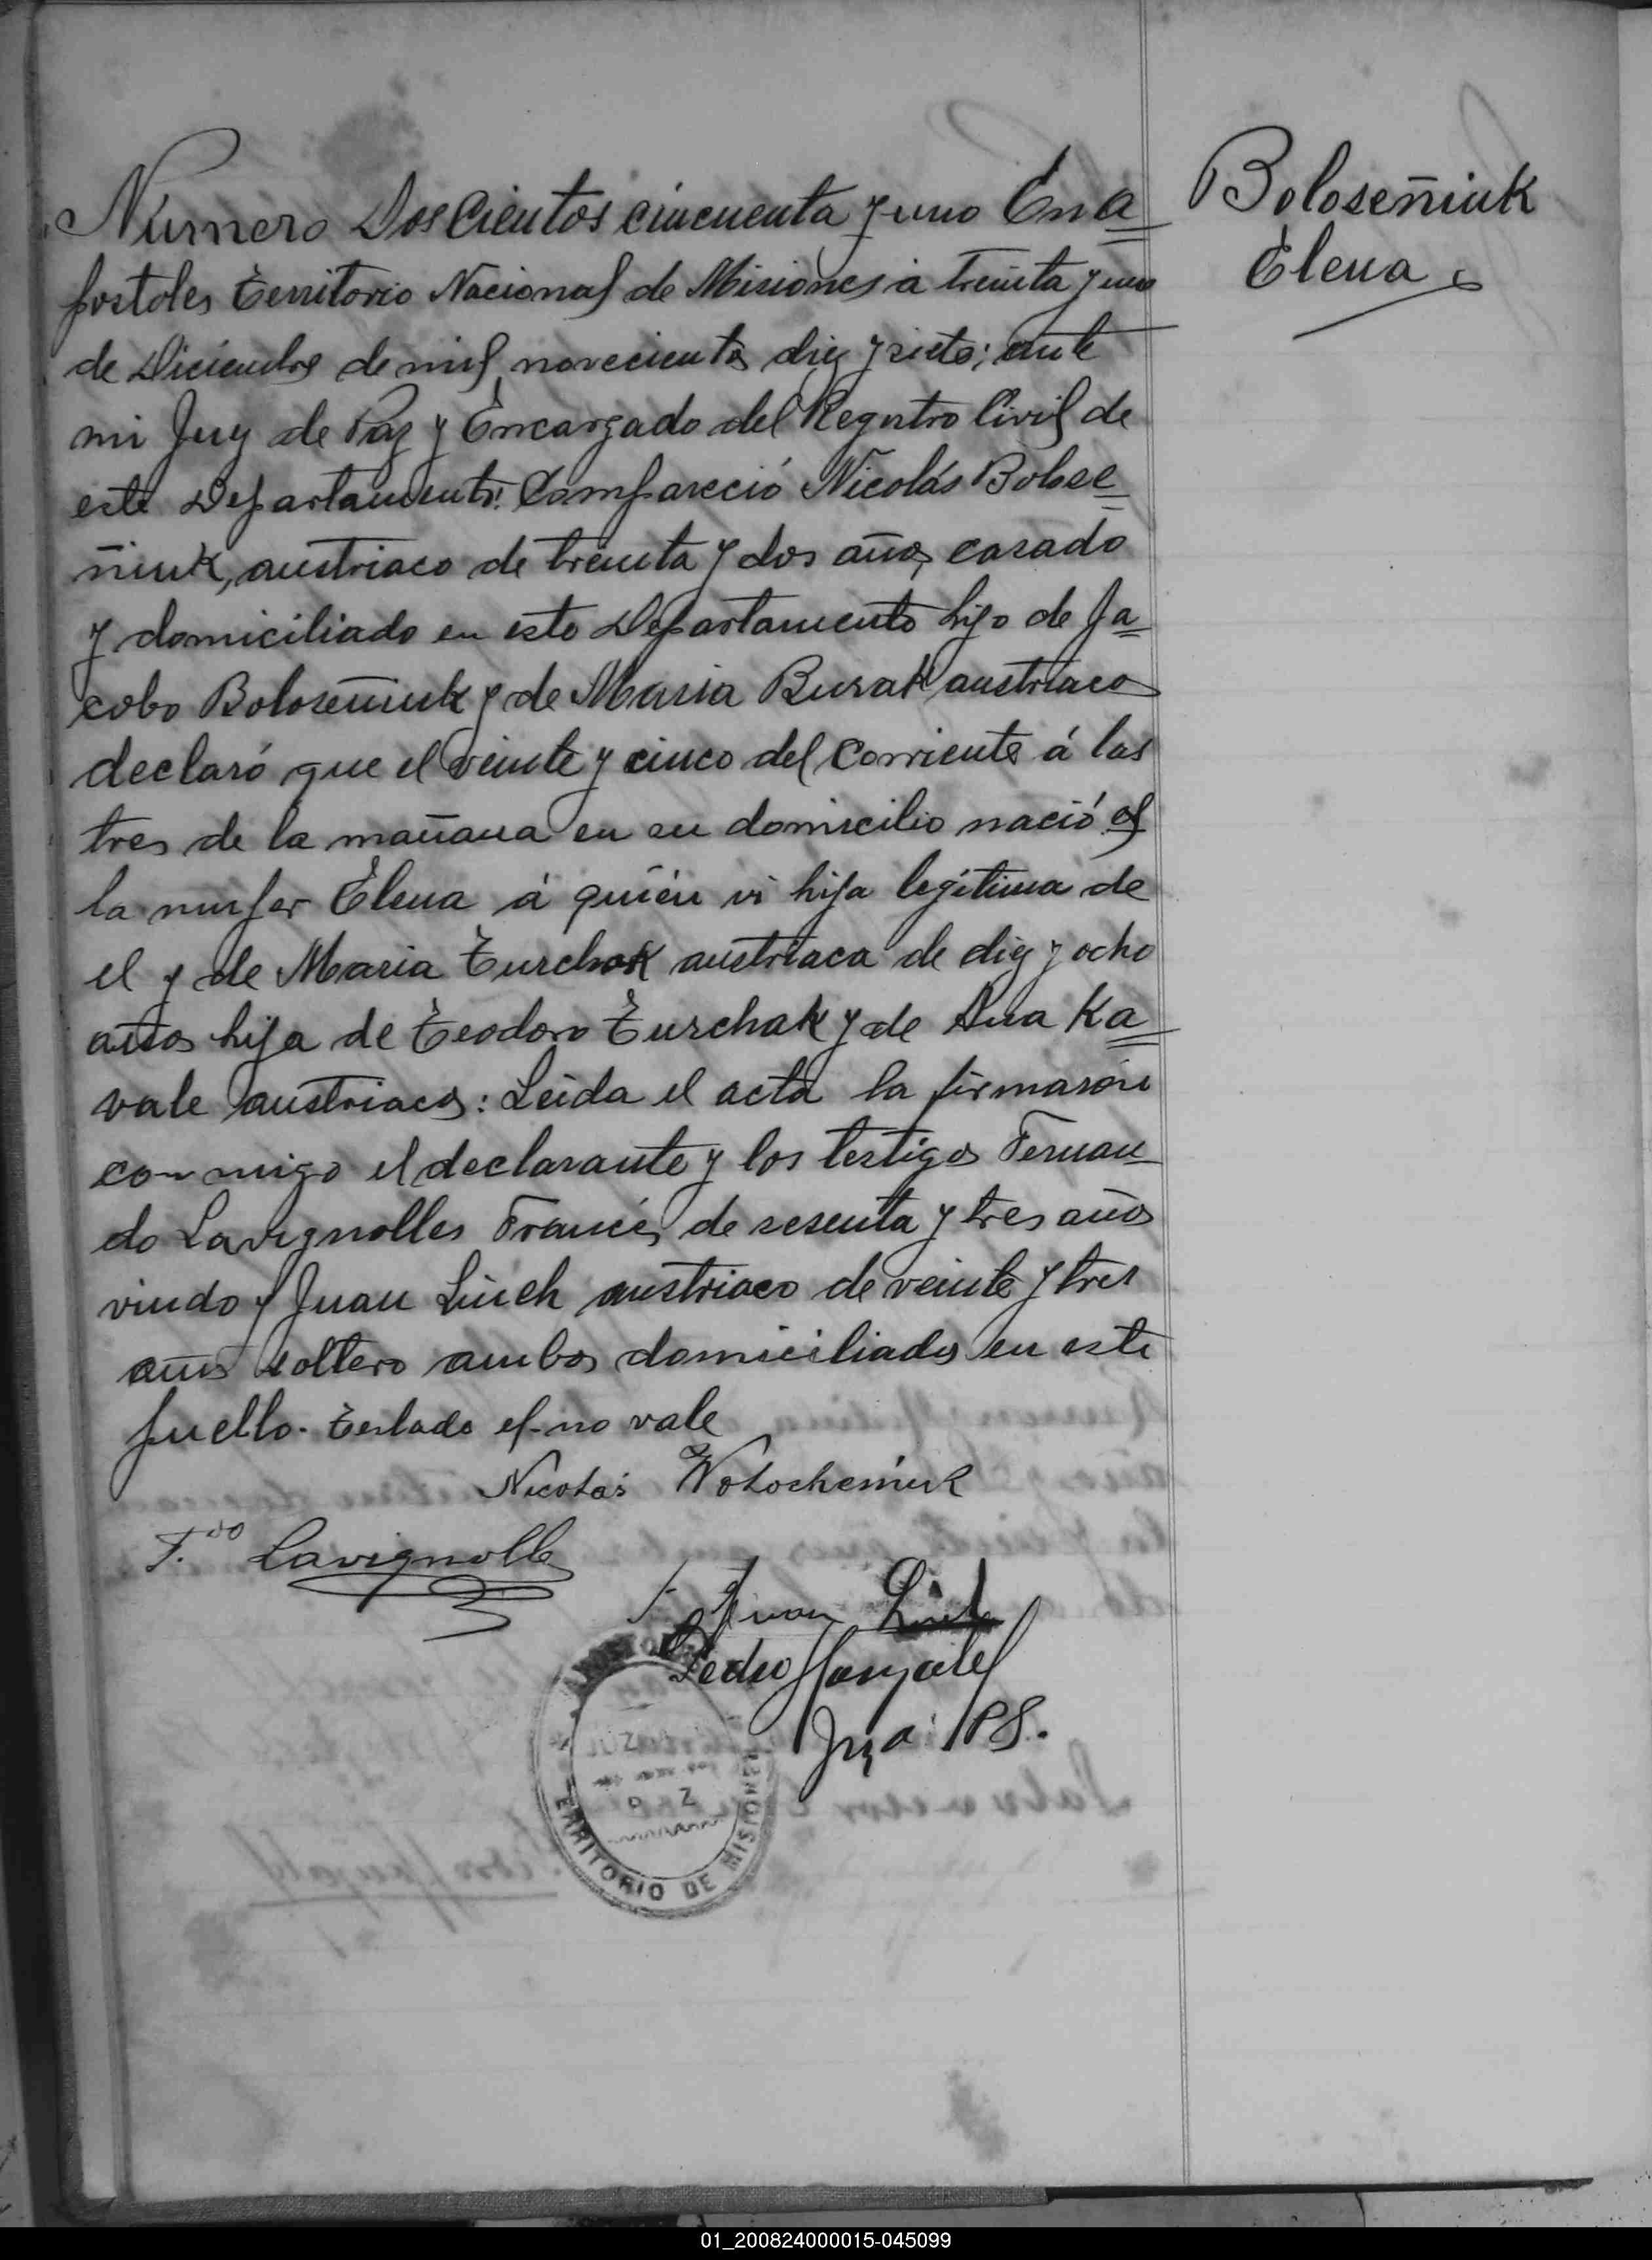 Boloseñiuk
Elena
Número Doscientos cincuenta y uno En A
postoles Territorio Nacional de Misiones á treinta y uno
de Diciembre de mil novecientos diez y siete; ante
mi Juez de Paz y Encargado del Registro Civil de
este Departamento: Compareció Nicolás Bolose
ñiuk, austriaco de treinta y dos años, casado
y domiciliado en este Departamento hijo de Ja
cobo Boloseñiuk y de Maria Burak austriacos
declaró que el veinte y cinco del corriente á las
tres de la mañana en su domicilio nació el
la mujer Elena á quién vi hija legítima de
el y de Maria Turchak austriaca de diez y ocho
años hija de Teodoro Turchak y de Ana Ka
vale austriacos: Leida el acta la firmaron
conmigo el declarante y los testigos Fernan
do Lavignolles Francés de sesenta y tres años
viudo y Juan Linch austriaco de veinte y tres
años soltero ambos domiciliados en este
pueblo. Testado el-no vale
Nicolás Wolocheniuk
F.do Lavignolle
Juan
Pedro Gonzalez
TERRITORIO DE MISIONES
01_200824000015-045099